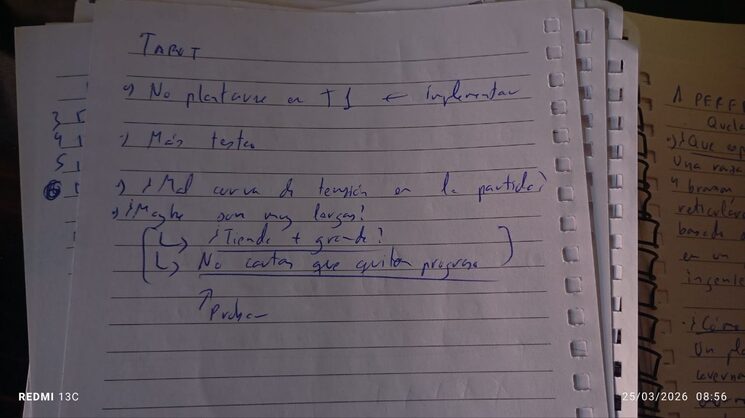 TAROT
•) No plantarse en T1 ← implementar
•) Más testeo
•) ¿Mal curva de tensión en la partida?
•) ¿Maybe son muy largas?
↳ ¿Tienda + grande?
↳ No cartas que quiten progreso
↑
Probar
3
4
5
6
A PERFI
Quela
•) ¿Que esp
Una raza
4 brazos,
reticular
basada
en un
ingenie
•) ¿Cómo
Un pla
REDMI 13C
25/03/2026 08:56